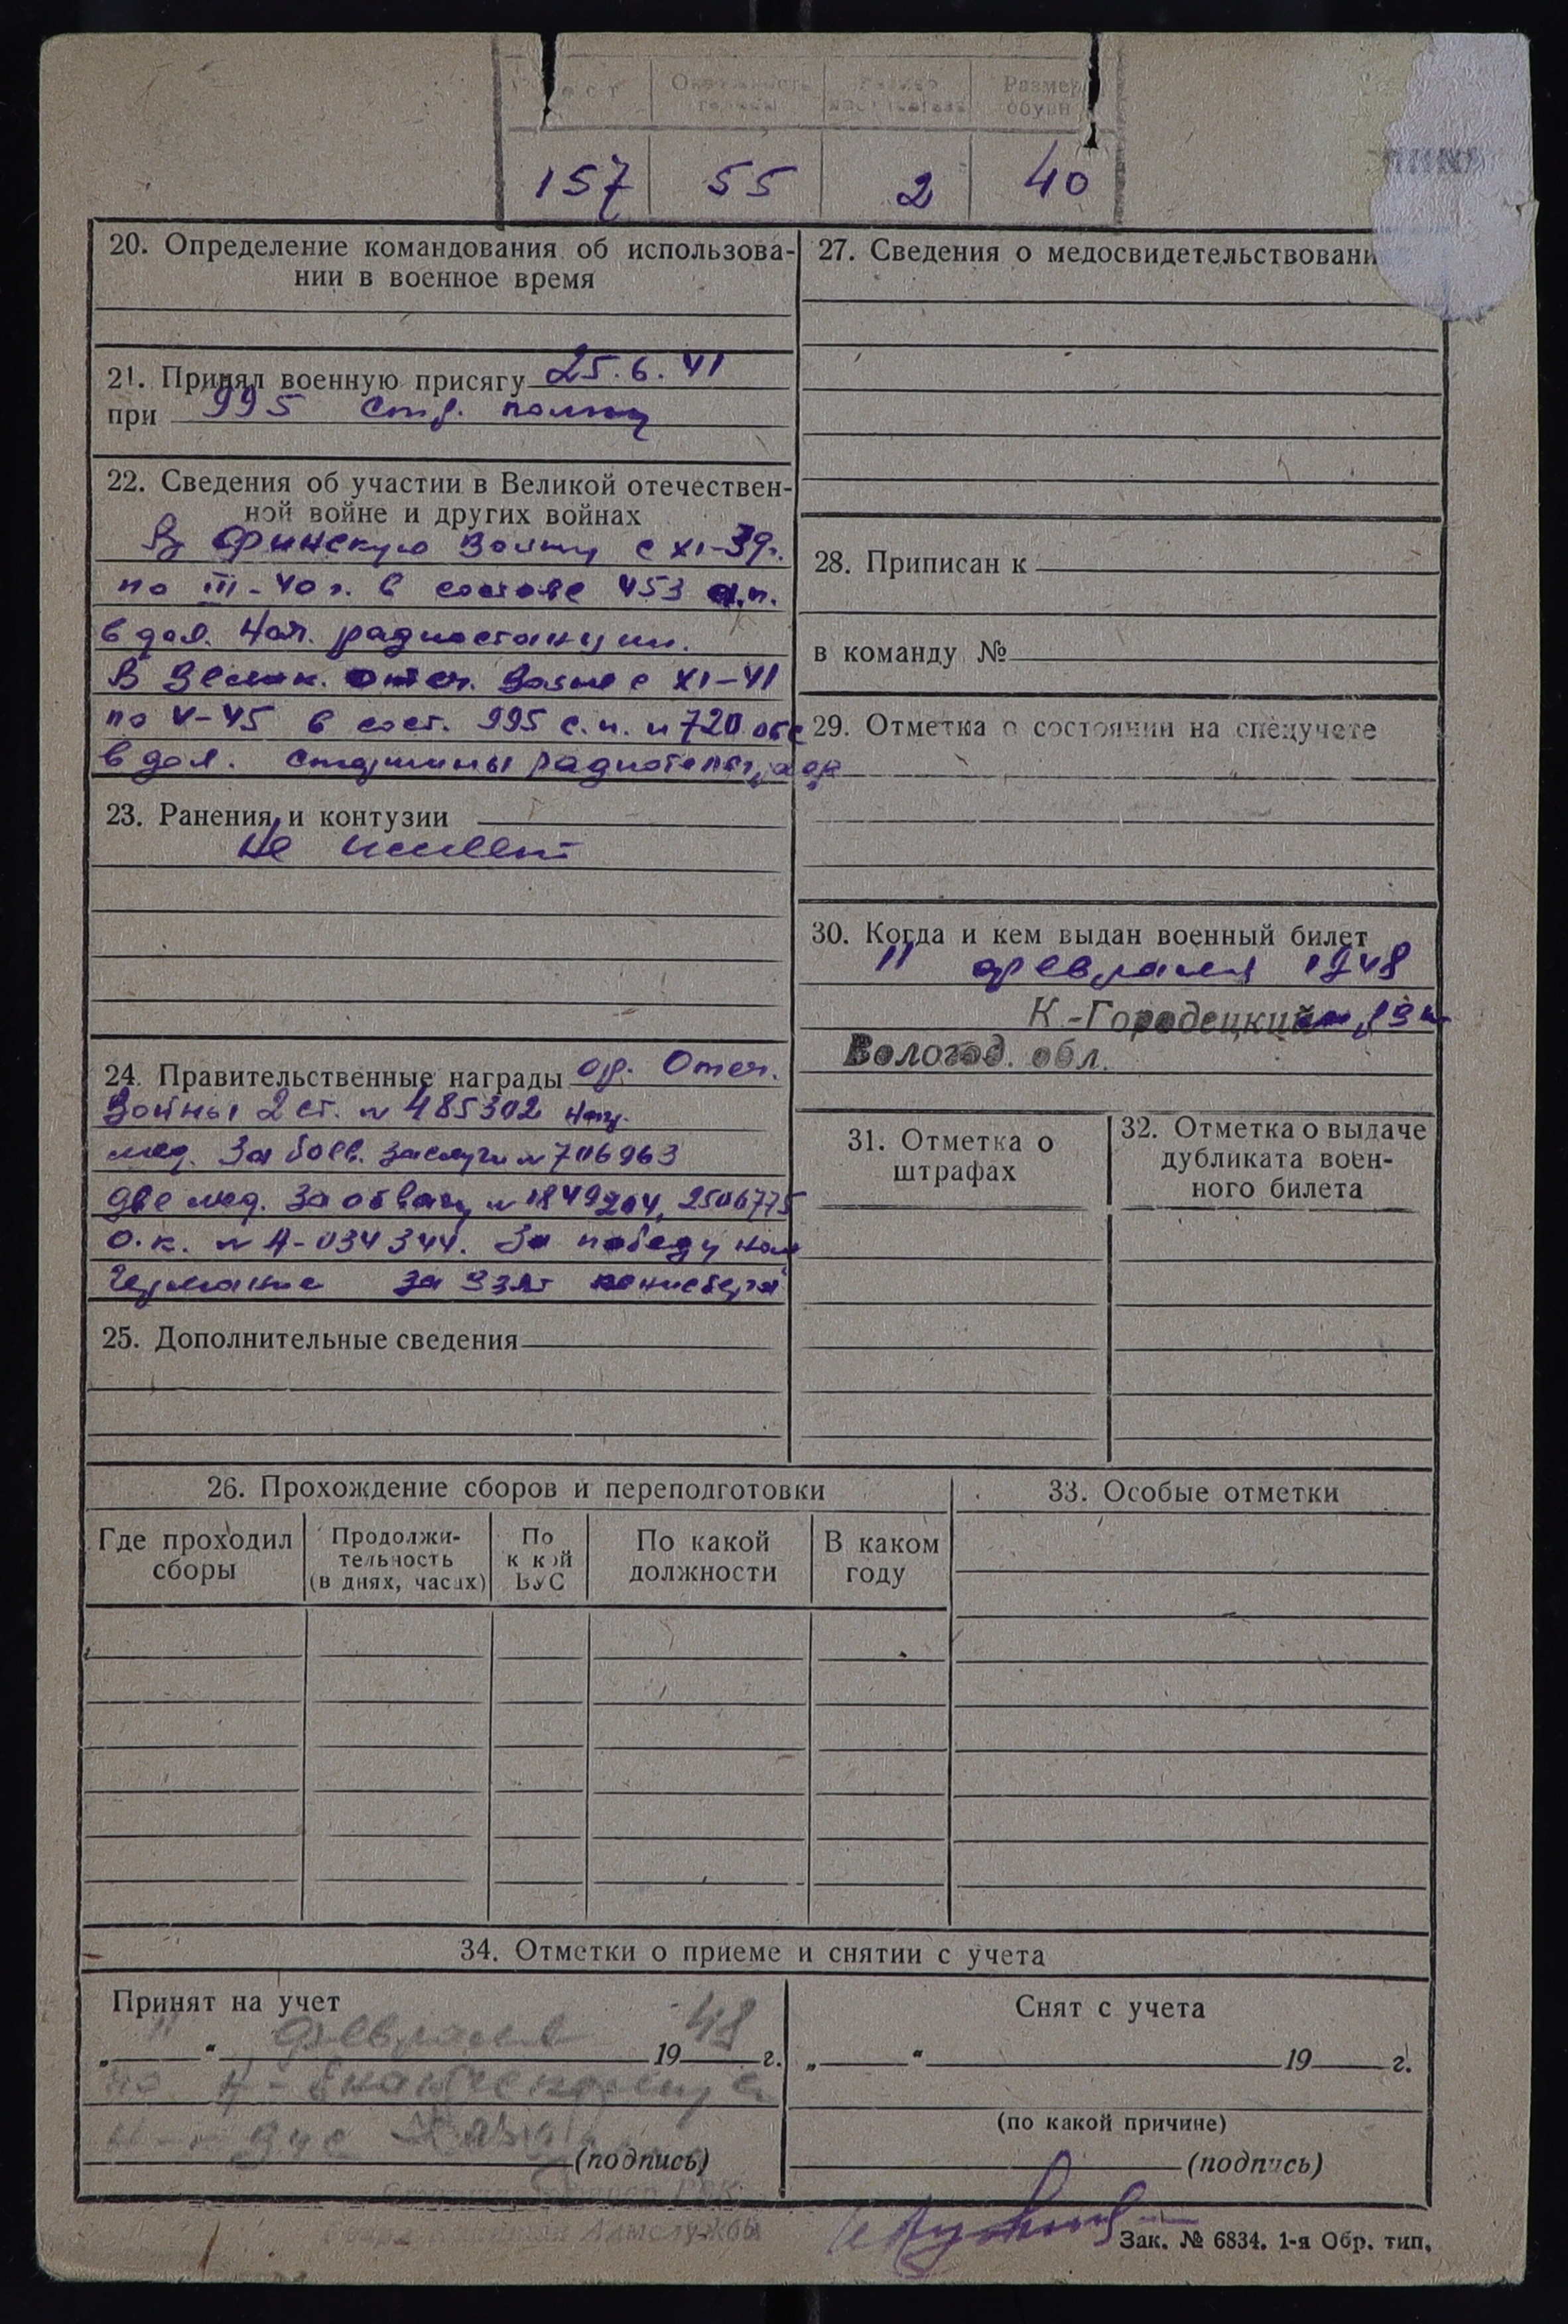 Рост Окружность головы Размер Размер обуви
157 55 2 40
20. Определение командования об использова-
нии в военное время
21. Принял военную присягу 25.6.41
при 995 стр. полку
22. Сведения об участии в Великой отечествен-
ной войне и других войнах
В Финскую войну с XI-39г.
по III-40г. в составе 453 а.п.
в дол. нач. радиостанции.
В Велик. отеч. войне с XI-41
по V-45 в сост. 995 с.п. и 720 обс
в дол. старшины радиотелеграфа
23. Ранения и контузии
не имеет
24. Правительственные награды ор. Отеч.
Войны 2 ст. № 485302
мед. За боев. заслуги № 706963
две мед. За отвагу № 1849204, 2506775
о.к. № А-034344. За победу над
Германие за взят кенисберга
25. Дополнительные сведения
27. Сведения о медосвидетельствовани
28. Приписан к
в команду №
29. Отметка о состоянии на спецучете
30. Когда и кем выдан военный билет
11 февраля 1948
К-Городецким РВК
Вологод. обл.
31. Отметка о
штрафах
32. Отметка о выдаче
дубликата воен-
ного билета
26. Прохождение сборов и переподготовки
Где проходил
сборы
Продолжи-
тельность
(в днях, часах)
По
какой
ВУС
По какой
должности
В каком
году
33. Особые отметки
34. Отметки о приеме и снятии с учета
Принят на учет
„ 11 “ февраля 1948 г.
(подпись)
Снят с учета
„ “ 19 г.
(по какой причине)
(подпись)
Зак. № 6834. 1-я Обр. тип.